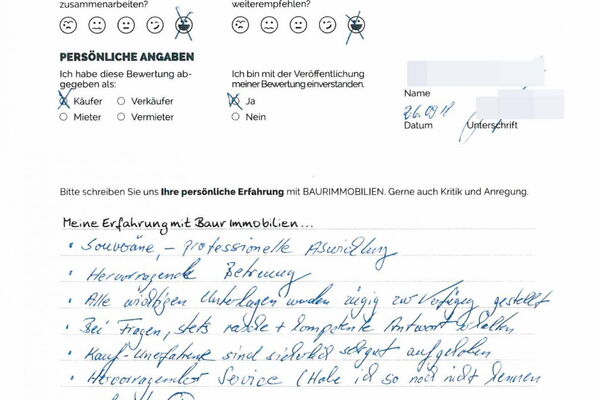 zusammenarbeiten?
weiterempfehlen?
PERSÖNLICHE ANGABEN
Ich habe diese Bewertung ab-
gegeben als:
Käufer
Verkäufer
Mieter
Vermieter
Ich bin mit der Veröffentlichung
meiner Bewertung einverstanden.
Ja
Nein
Name
26.09.18
Datum
Unterschrift
Bitte schreiben Sie uns Ihre persönliche Erfahrung mit BAURIMMOBILIEN. Gerne auch Kritik und Anregung.
Meine Erfahrung mit Baur Immobilien...
• Souveräne, – professionelle Abwicklung
• Hervorragende Betreuung
• Alle wichtigen Unterlagen wurden zügig zur Verfügung gestellt
• Bei Fragen, stets rasche + kompetente Antwort erhalten
• Kauf-Unerfahrene sind sicherlich sehr gut aufgehoben
• Hervorragender Service (Habe ich so noch nicht kennen